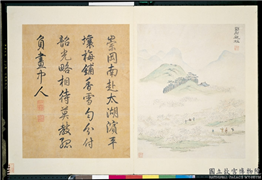 崇岡南赴太湖濱平
壤梅鋪雪勻分付
韶光略相待莫教孤
負畫中人
國立故宮博物院